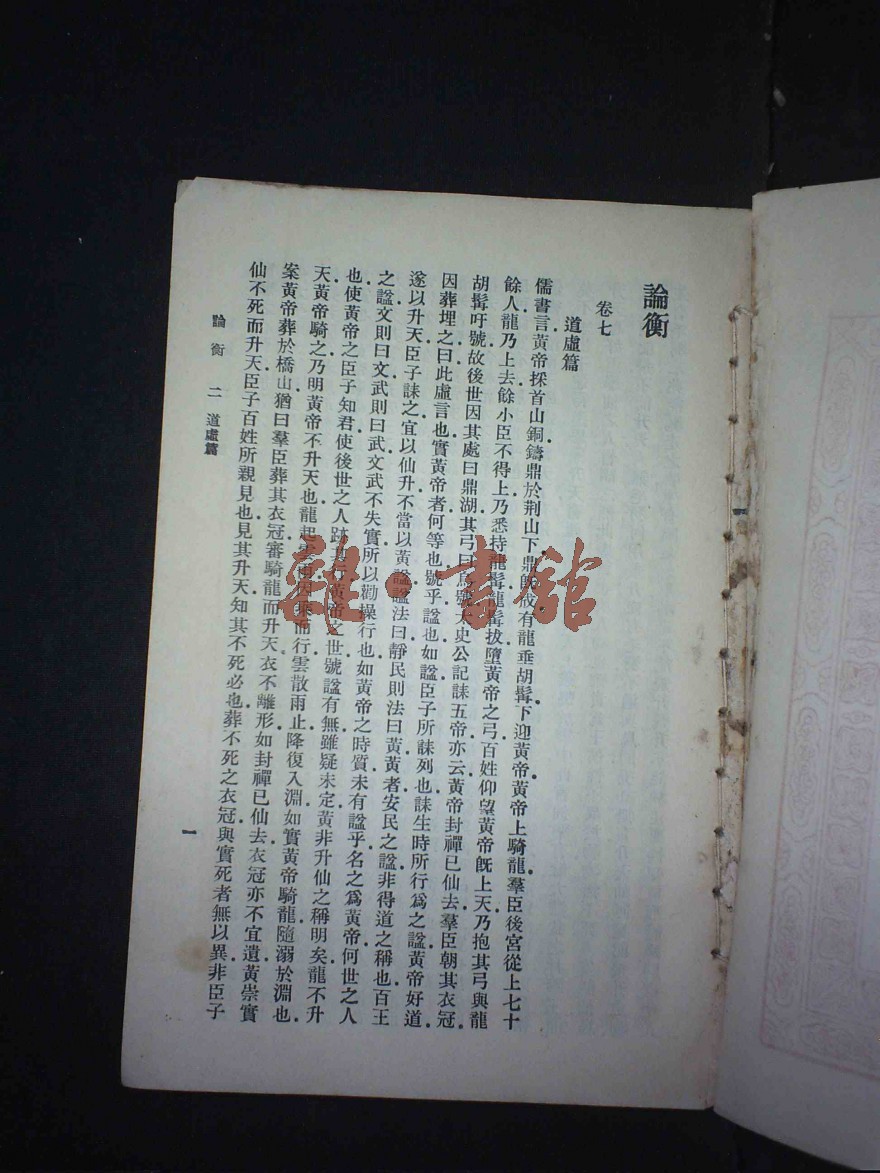 論衡
卷七
道虛篇
儒書言黃帝採首山銅鑄鼎於荆山下鼎旣成有龍垂胡髯下迎黃帝黃帝上騎龍羣臣後宮從上七十
餘人龍乃上去餘小臣不得上乃悉持龍髯龍髯拔墮黃帝之弓百姓仰望黃帝旣上天乃抱其弓與龍
胡髯吁號故後世因其處曰鼎湖其弓曰烏號太史公記誄五帝亦云黃帝封禪已仙去羣臣朝其衣冠
因葬埋之曰此虛言也實黃帝者何等也號乎諡也如諡臣子所誄列也誄生時所行爲之諡黃帝好道
遂以升天臣子誄之宜以仙升不當以黃諡諡法曰靜民則法曰黃黃者安民之諡非得道之稱也百王
之諡文則曰文武則曰武文武不失實所以勸操行也如黃帝之時質未有諡乎名之爲黃帝何世之人
也使黃帝之臣子知君使後世之人跡其行黃帝之世號諡有無雖疑未定黃非升仙之稱明矣龍不升
天黃帝騎之乃明黃帝不升天也龍起雲雨因乘而行雲散雨止降復入淵如實黃帝騎龍隨溺於淵也
案黃帝葬於橋山猶曰羣臣葬其衣冠審騎龍而升天衣不離形如封禪已仙去衣冠亦不宜遺黃崇實
仙不死而升天臣子百姓所親見也見其升天知其不死必也葬不死之衣冠與實死者無以異非臣子
論衡 二 道虛篇 一
雜·書館